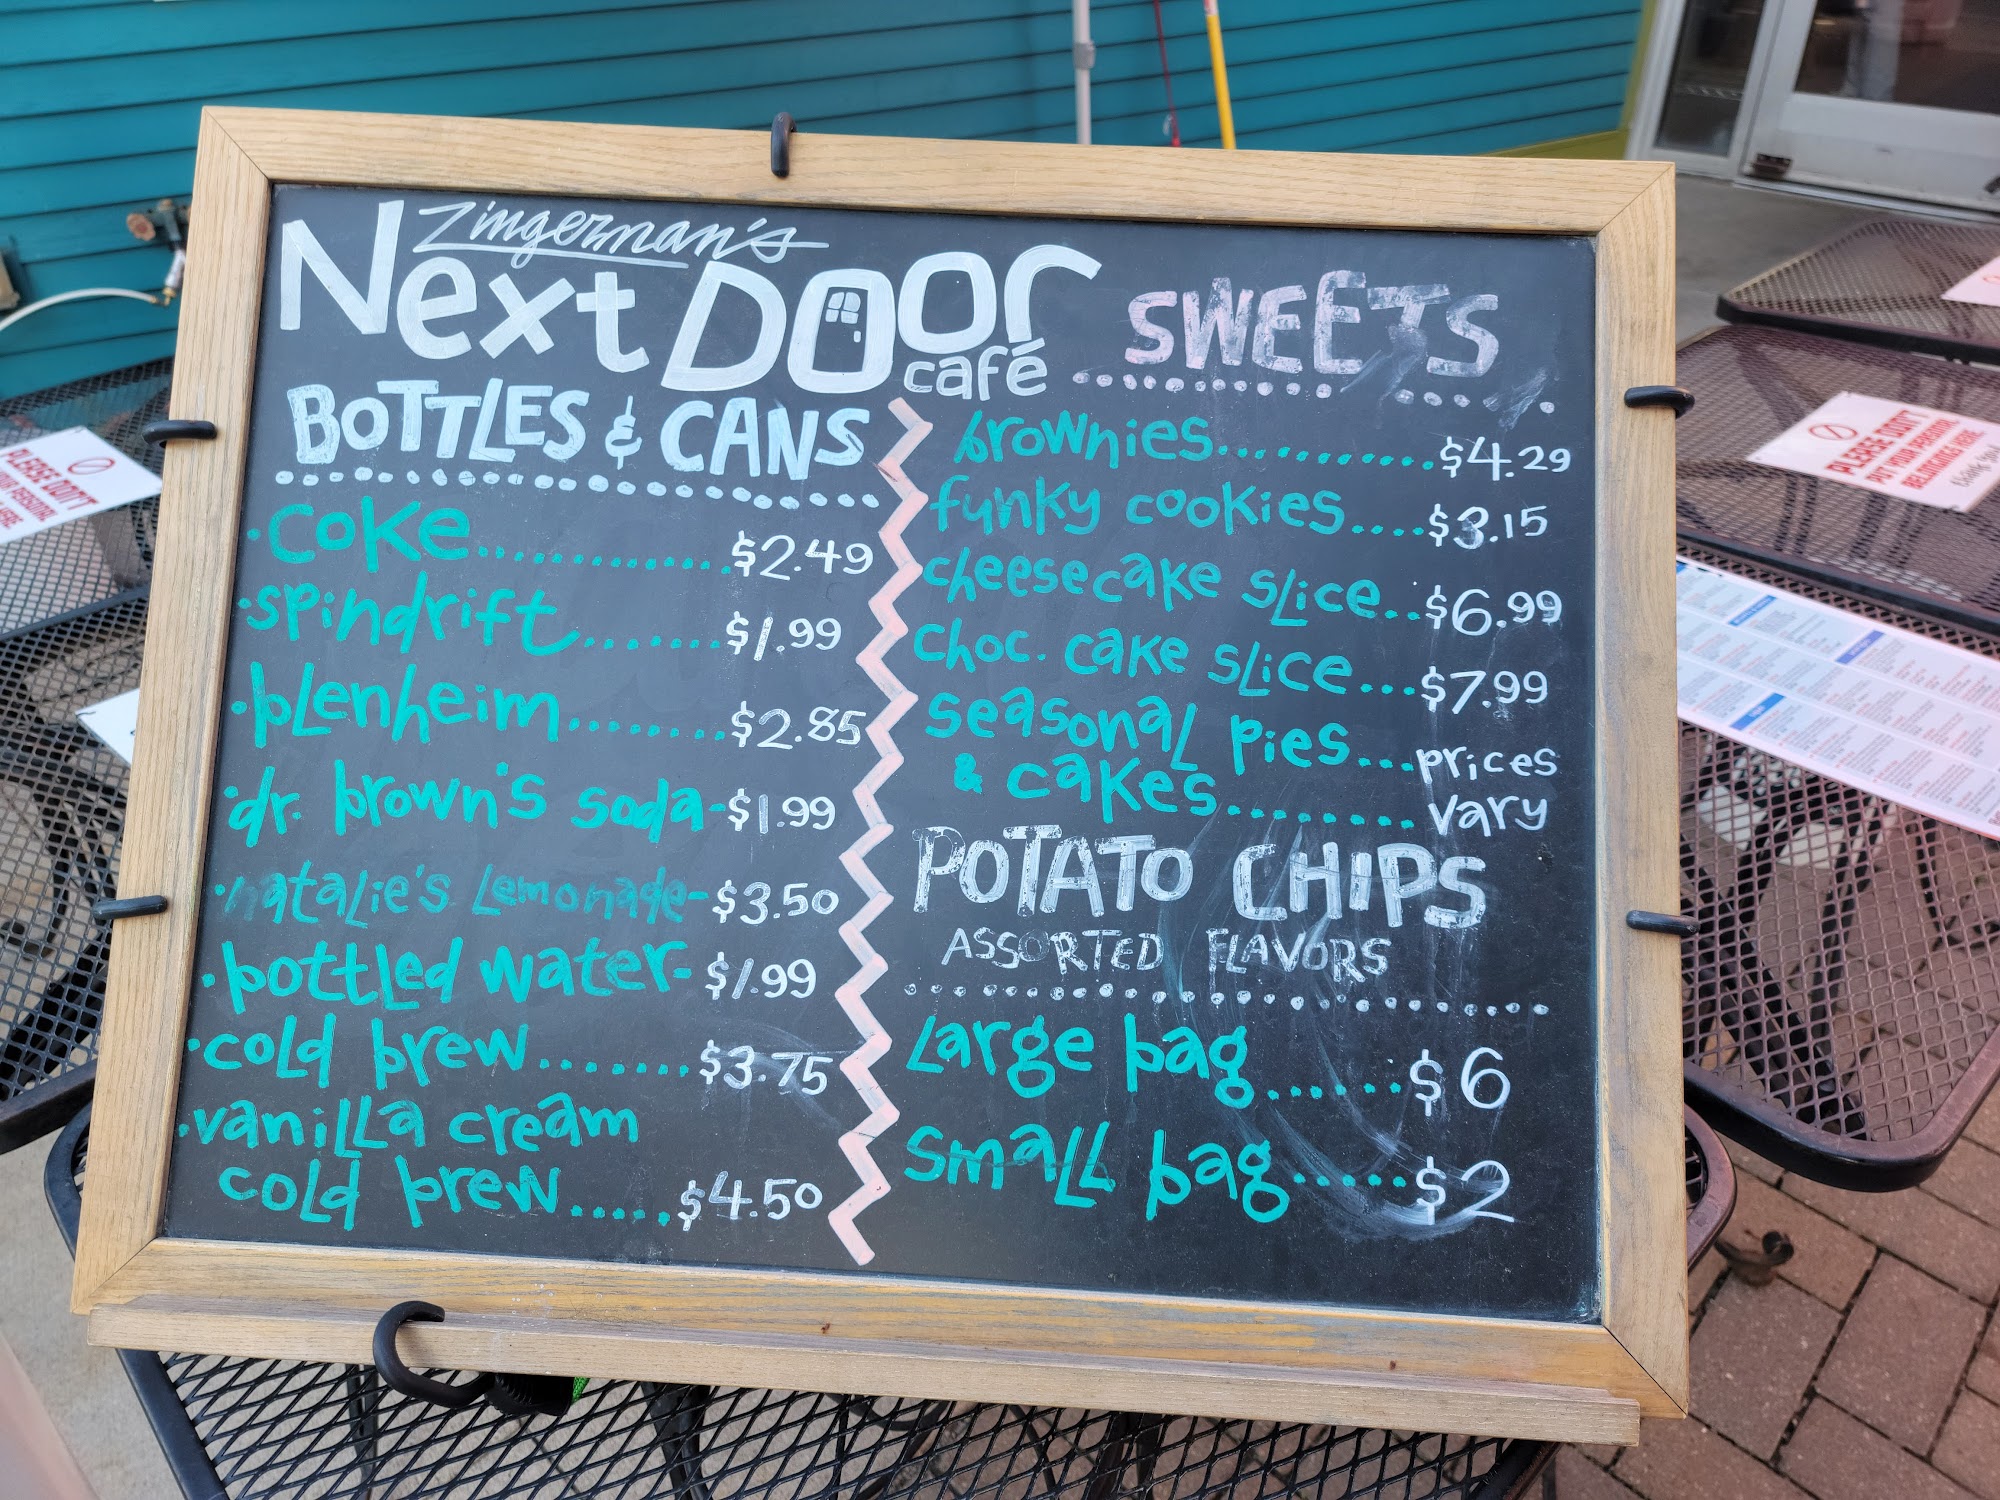 Zingerman's
Next Door
café
BOTTLES & CANS
• coke............$2.49
• spindrift.......$1.99
• blenheim.......$2.85
• dr. brown's soda-$1.99
• natalie's lemonade-$3.50
• bottled water-$1.99
• cold brew.......$3.75
• vanilla cream
cold brew.....$4.50
SWEETS
brownies...........$4.29
funky cookies....$3.15
cheesecake slice..$6.99
choc. cake slice...$7.99
seasonal pies...prices
& cakes........vary
POTATO CHIPS
ASSORTED FLAVORS
large bag......$6
small bag.....$2
PLEASE DON'T
PUT YOUR PERSONAL
BELONGINGS HERE
PLEASE DON'T